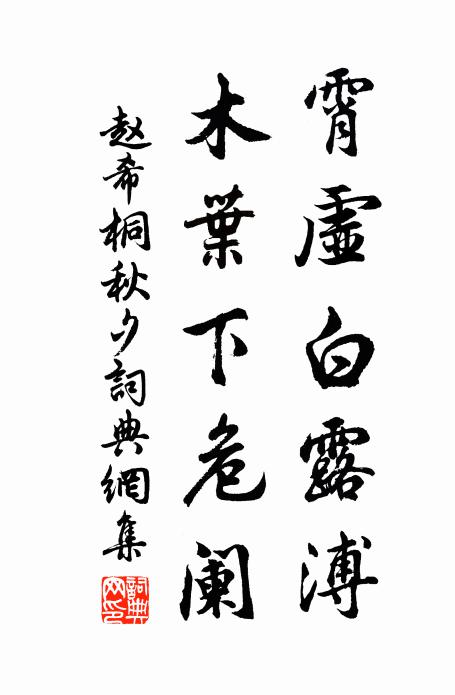 霄虛白露溥
木葉下危阑
赵希桐秋夕詞典網集
詞典
网印